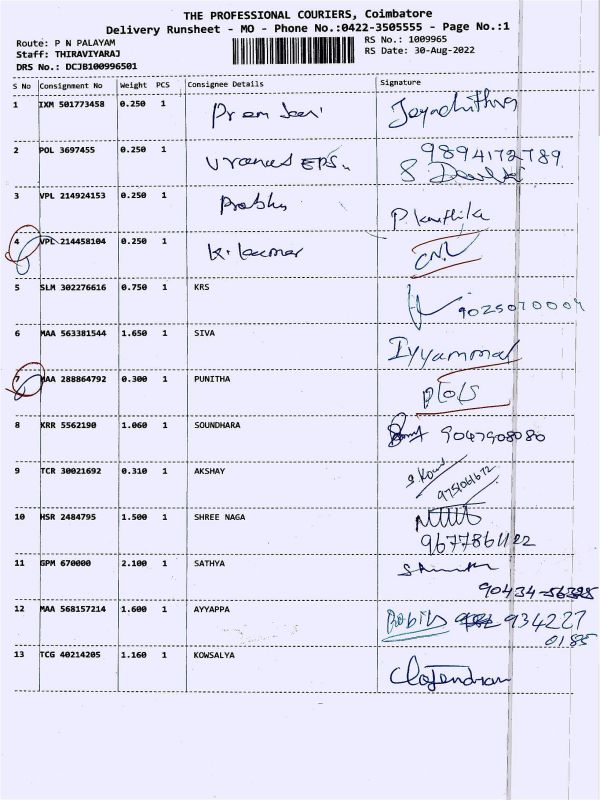 THE PROFESSIONAL COURIERS, Coimbatore
Delivery Runsheet - MO - Phone No.:0422-3505555 - Page No.:1
Route: P N PALAYAM
RS No.: 1009965
Staff: THIRAVIYARAJ
RS Date: 30-Aug-2022
DRS No.: DCJB100996501
S No Consignment No Weight PCS Consignee Details Signature
1 IXM 501773458 0.250 1 Prem
2 POL 3697455 0.250 1 EPS. 9894172789
3 VPL 214924153 0.250 1 Prabhu P. Karthika
4 VPL 214458104 0.250 1 K. Kumar
5 SLM 302276616 0.750 1 KRS
6 MAA 563381544 1.650 1 SIVA Iyyammal
7 MAA 288864792 0.300 1 PUNITHA
8 KRR 5562190 1.060 1 SOUNDHARA 9047908080
9 TCR 30021692 0.310 1 AKSHAY
10 HSR 2484795 1.500 1 SHREE NAGA
11 GPM 670000 2.100 1 SATHYA
12 MAA 568157214 1.600 1 AYYAPPA 934227
0185
13 TCG 40214205 1.160 1 KOWSALYA